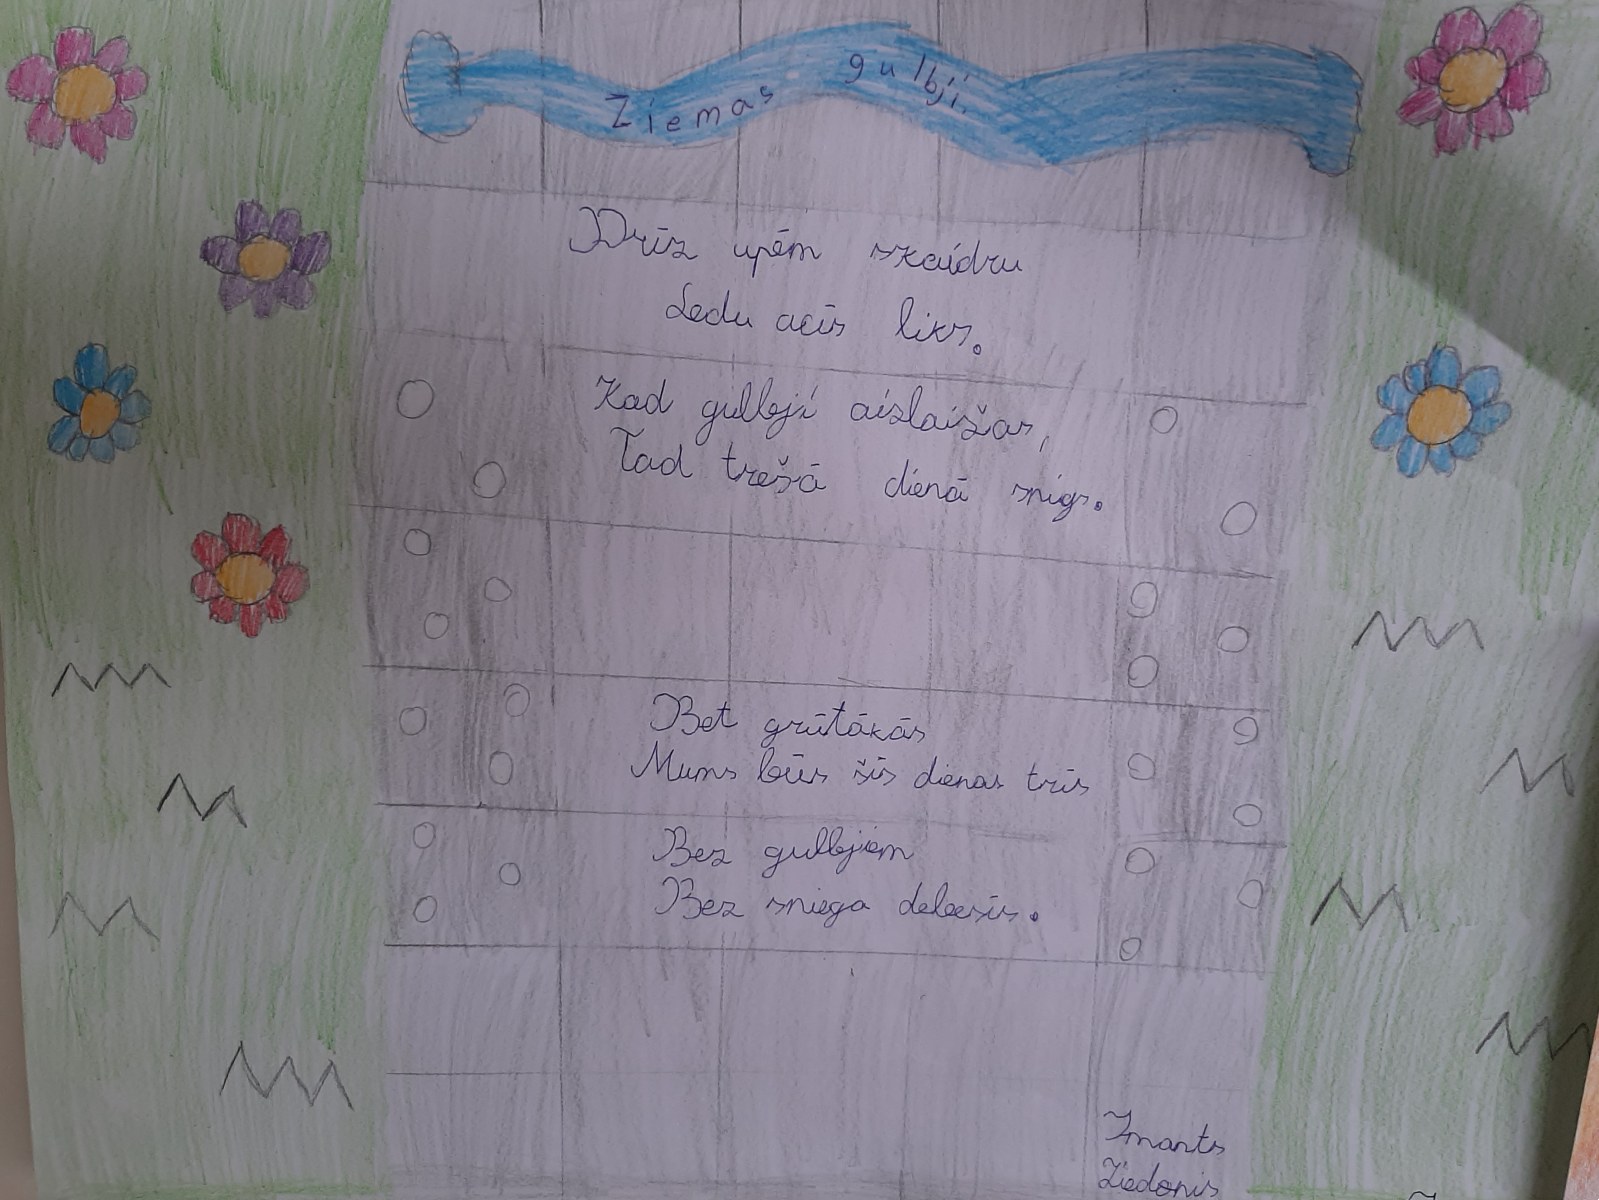 Ziemas gulbji.
Drīz upēm skaidru
Ledu acīs liks.
Kad gulbji aizlaižas,
Tad trešā dienā snigs.
Bet grūtākās
Mums būs šīs dienas trīs
Bez gulbjiem
Bez sniega debesīs.
Imants
Ziedonis